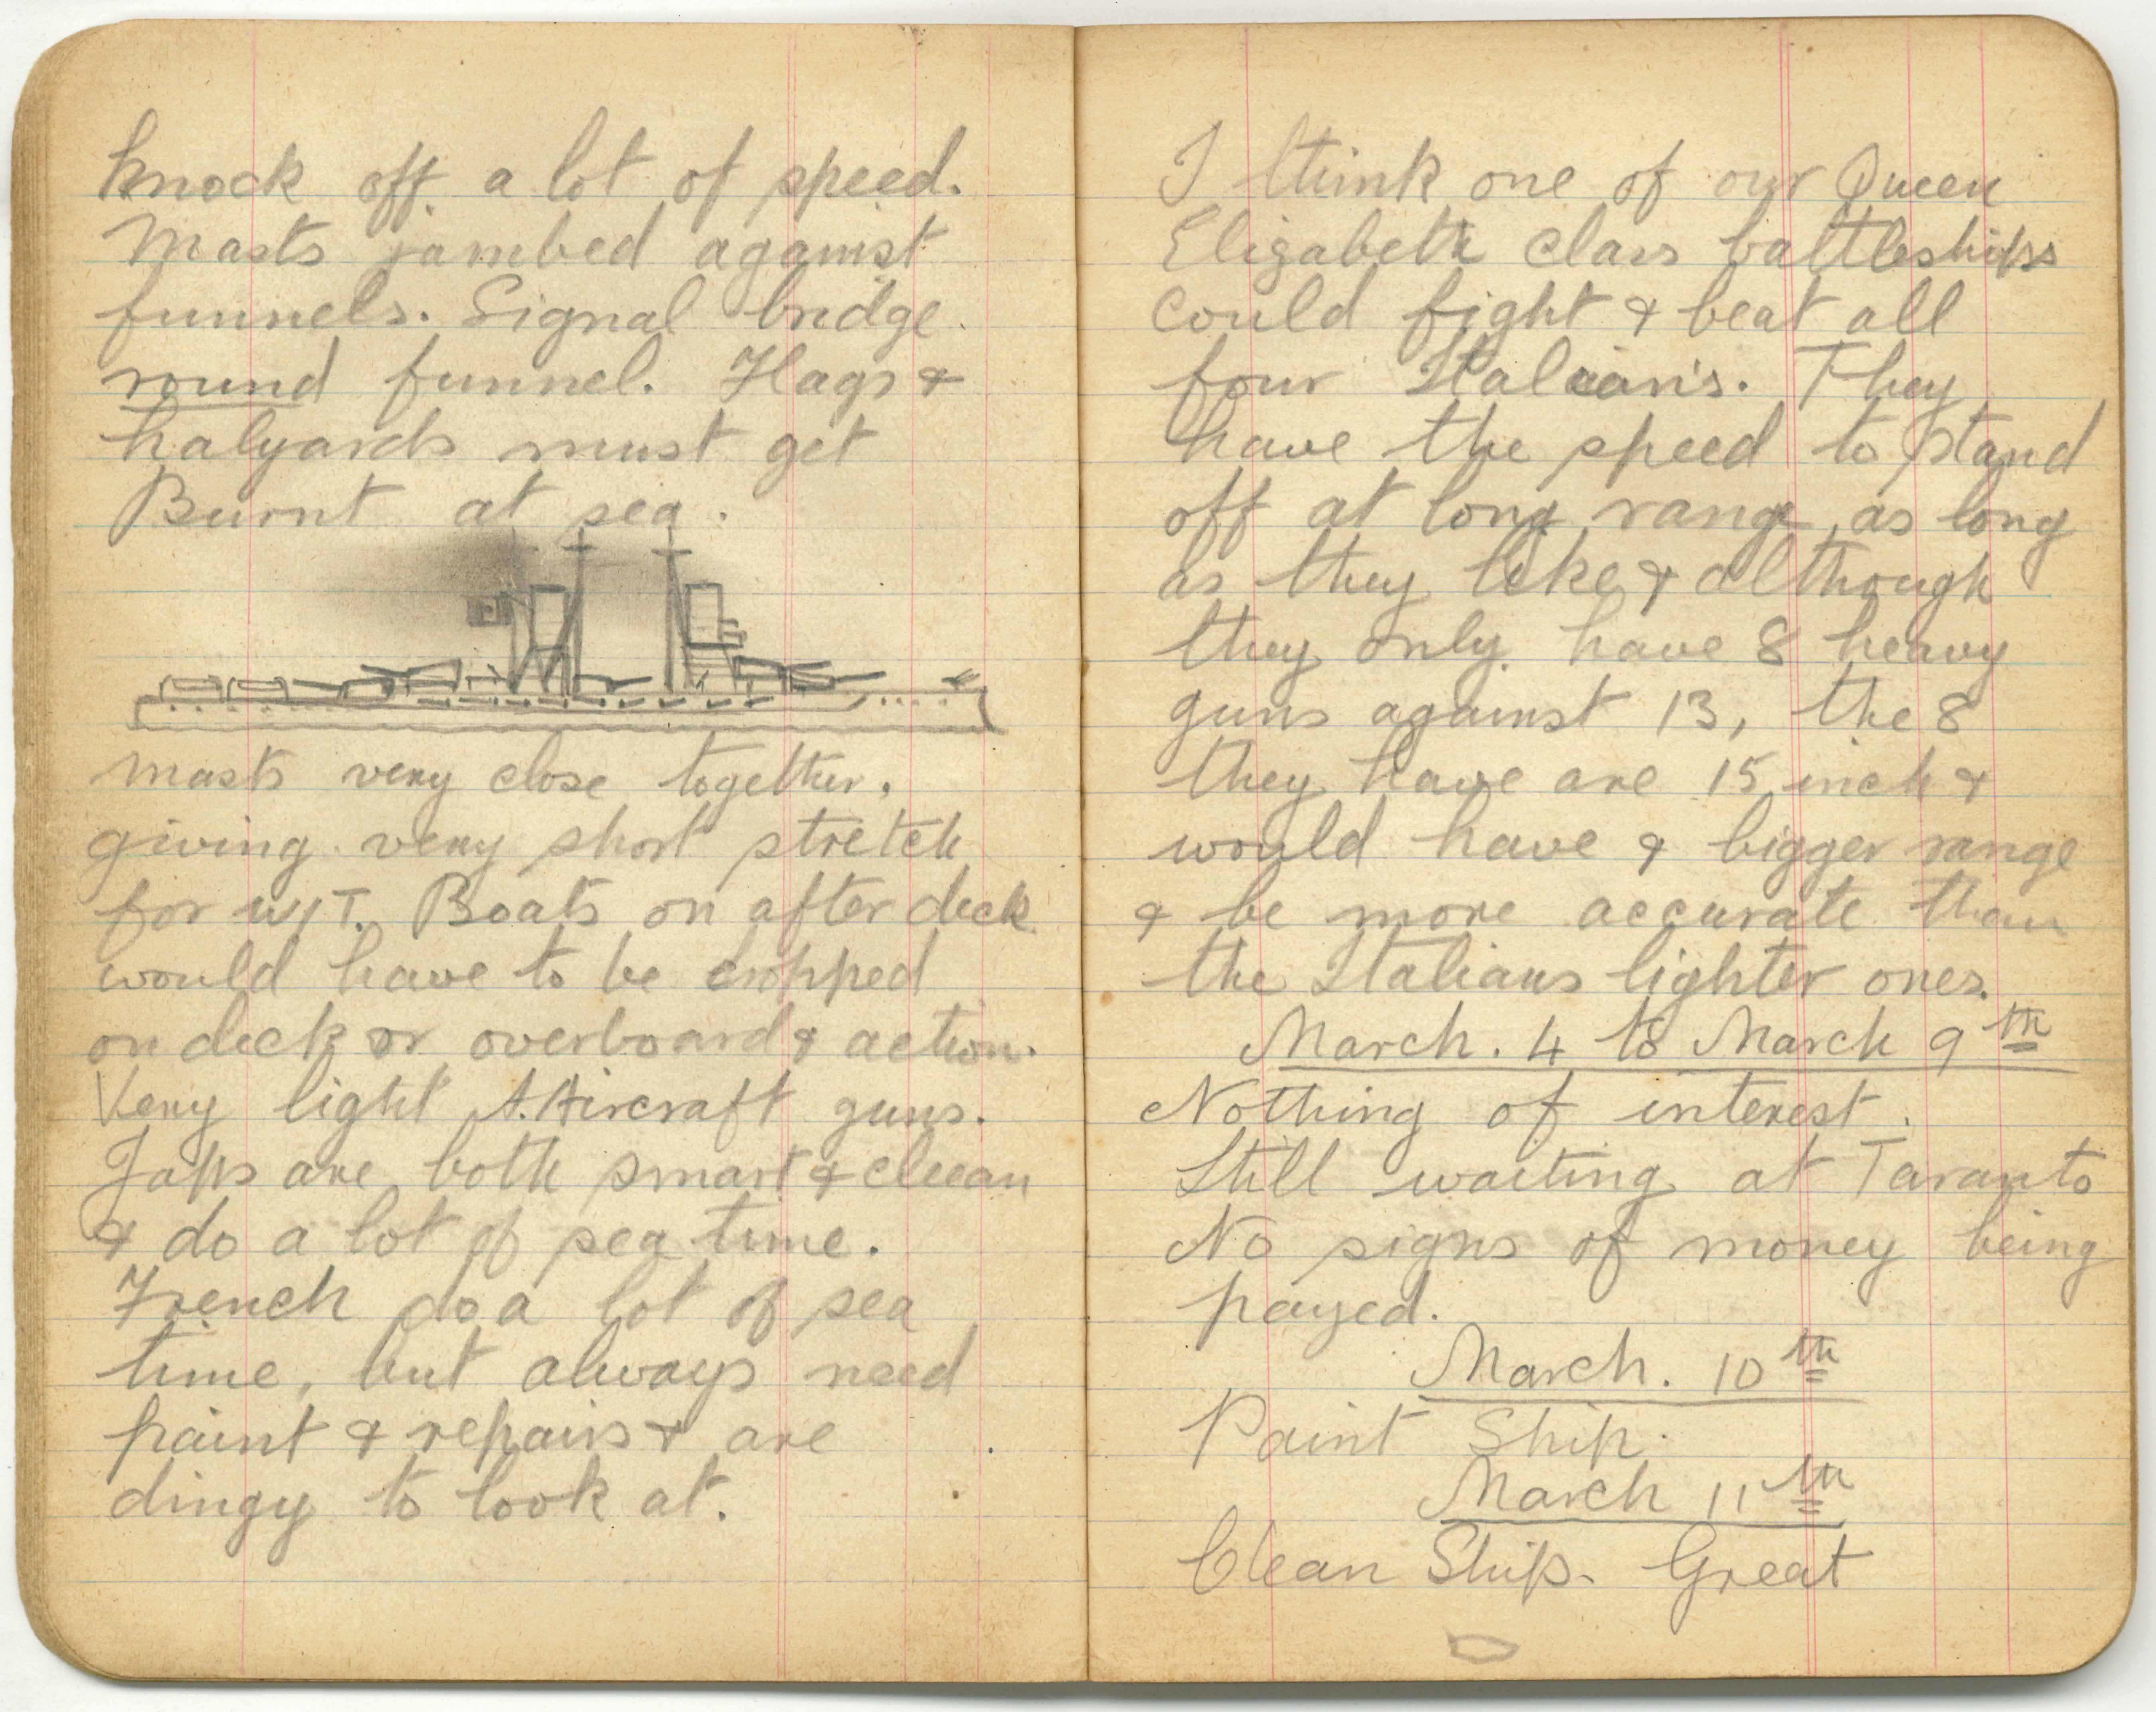 knock off a lot of speed.
Masts jambed against
funnels. Signal bridge
round funnel. Flags &
halyards must get
Burnt at sea.
masts very close together.
giving very short stretch
for W/T. Boats on after deck
would have to be dropped
on deck or overboard & action.
Very light A.Aircraft guns.
Japs are both smart & clean
& do a lot of sea time.
French do a lot of sea
time, but always need
paint & repairs & are
dingy to look at.
I think one of our Queen
Elizabeth class battleships
could fight & beat all
four Italian's. They
have the speed to stand
off at long range, as long
as they like & although
they only have 8 heavy
guns against 13, the 8
they have are 15 inch &
would have & bigger range
& be more accurate than
the Italians lighter ones.
March. 4 to March 9th
Nothing of interest.
Still waiting at Taranto
No signs of money being
payed.
March. 10th
Paint Ship.
March 11th
Clean Ship. Great